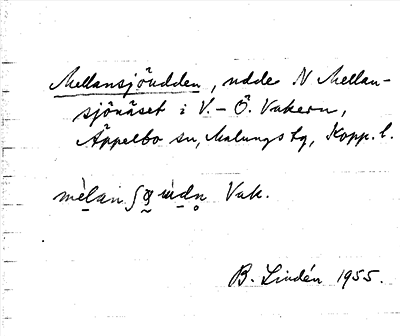 Mellansjöudden, udde N Mellan-
sjönäset i V.- Ö. Vakern,
Äppelbo sn, Malungs tg, Kopp. l.
Vak.
B. Lindén 1955.